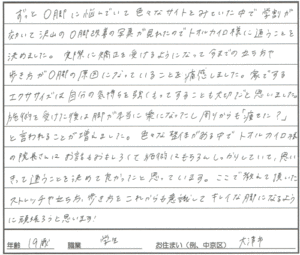 ずっとO脚に悩んでいて色々なサイトをみていた中で学割が
あいて沢山のO脚改善の写真が見れたのでトオルカイロ様に通うことを
決めました。実際に矯正を受けるようになって今までの立ち方や
歩き方がO脚の原因になっていることを痛感しました。家でする
エクササイズは自分の気持ちを強くもってすることも大切だと思いました。
施術を受けた後は脚が本当に楽になったし周りからも「痩せた？」
と言われることが増えました。色々な整体がある中でトオルカイロ様
の院長さんはお話もおもしろくて施術はもちろんしっかりしていて、思い
きって通うことを決めて良かったと思っています。ここで教えて頂いた
ストレッチや立ち方、歩き方をこれからも意識してキレイな脚になるよう
に頑張ろうと思います!
年齢 19歳 職業 学生 お住まい(例、中京区) 大津市